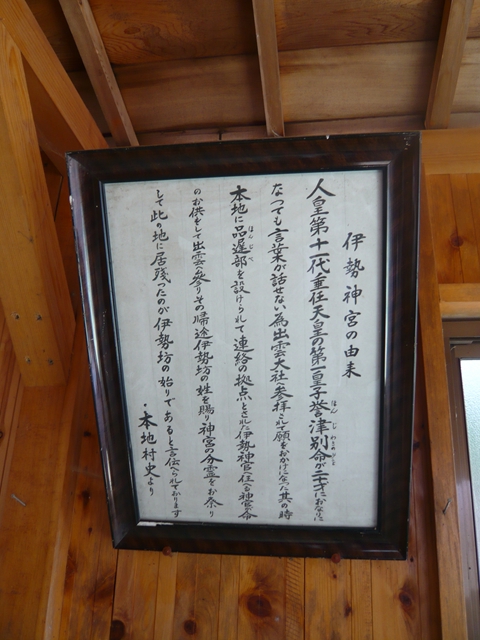 伊勢神宮の由来
人皇第十一代垂任天皇の第一皇子誉津別命が二十才におなりに
なつても言葉が話せない為出雲大社へ参拝されて願をおかけになつた其の時
本地に品遅部を設けられて連絡の拠点とされた伊勢神宮へ仕へる神官命
のお供をして出雲へ参りその帰途伊勢坊の姓を賜り神宮の分霊をお祭り
して此の地に居残つたのが伊勢坊の始りであると言伝へられております
・本地村史より